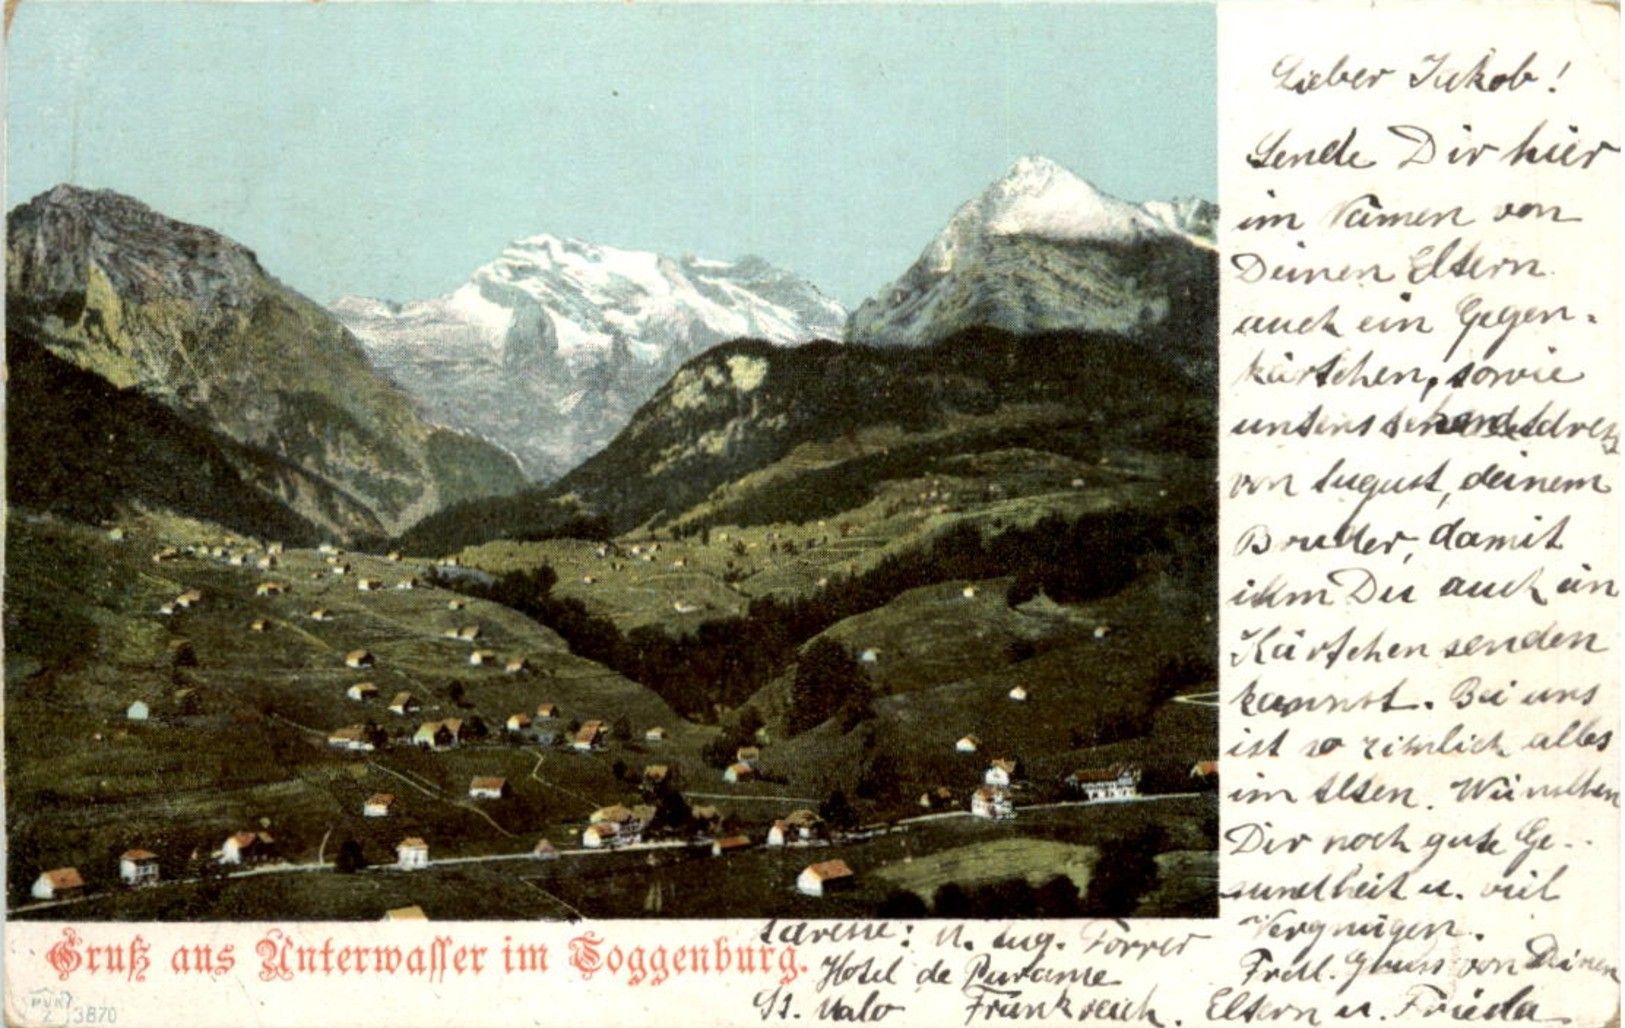 Lieber Jakob!
Sende Dir hier
im Namen von
Deinen Eltern
auch ein Gegen-
kärtchen, sowie
untenstehend Adresz
von August, deinem
Bruder, damit
ihm Du auch ein
Kärtchen senden
kannst. Bei uns
ist so zimlich alles
im Alten. Wünschen
Dir noch gute Ge-
sundheit u. viel
Vergnügen.
Frdl. Gruss von Deinen
Eltern u. Frieda
Adresse: A. Aug. Forrer
Hotel de
St. Malo Frankreich.
Gruß aus Unterwasser im Toggenburg.
3870